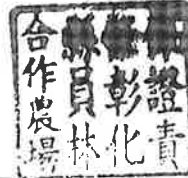 證責
彰化
縣員林
合作農場